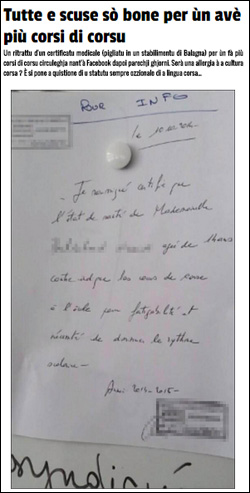 Tutte e scuse sò bone per ùn avè
più corsi di corsu
Un ritrattu d'un certificatu medicale (pigliatu in un stabilimentu di Balagna) per ùn fà più
corsi di corsu circuleghja nant'à Facebook dapoi parechji ghjorni. Serà una allergia à a cultura
corsa ? È si pone a quistione di u statutu sempre ozzionale di a lingua corsa...
POUR INFO
Je soussigné certifie que
l'état de santé de Mademoiselle
agée de
contre indique les cours de corse
à l'école pour fatigabilité et
nécessité de diminuer le rythme
scolaire -